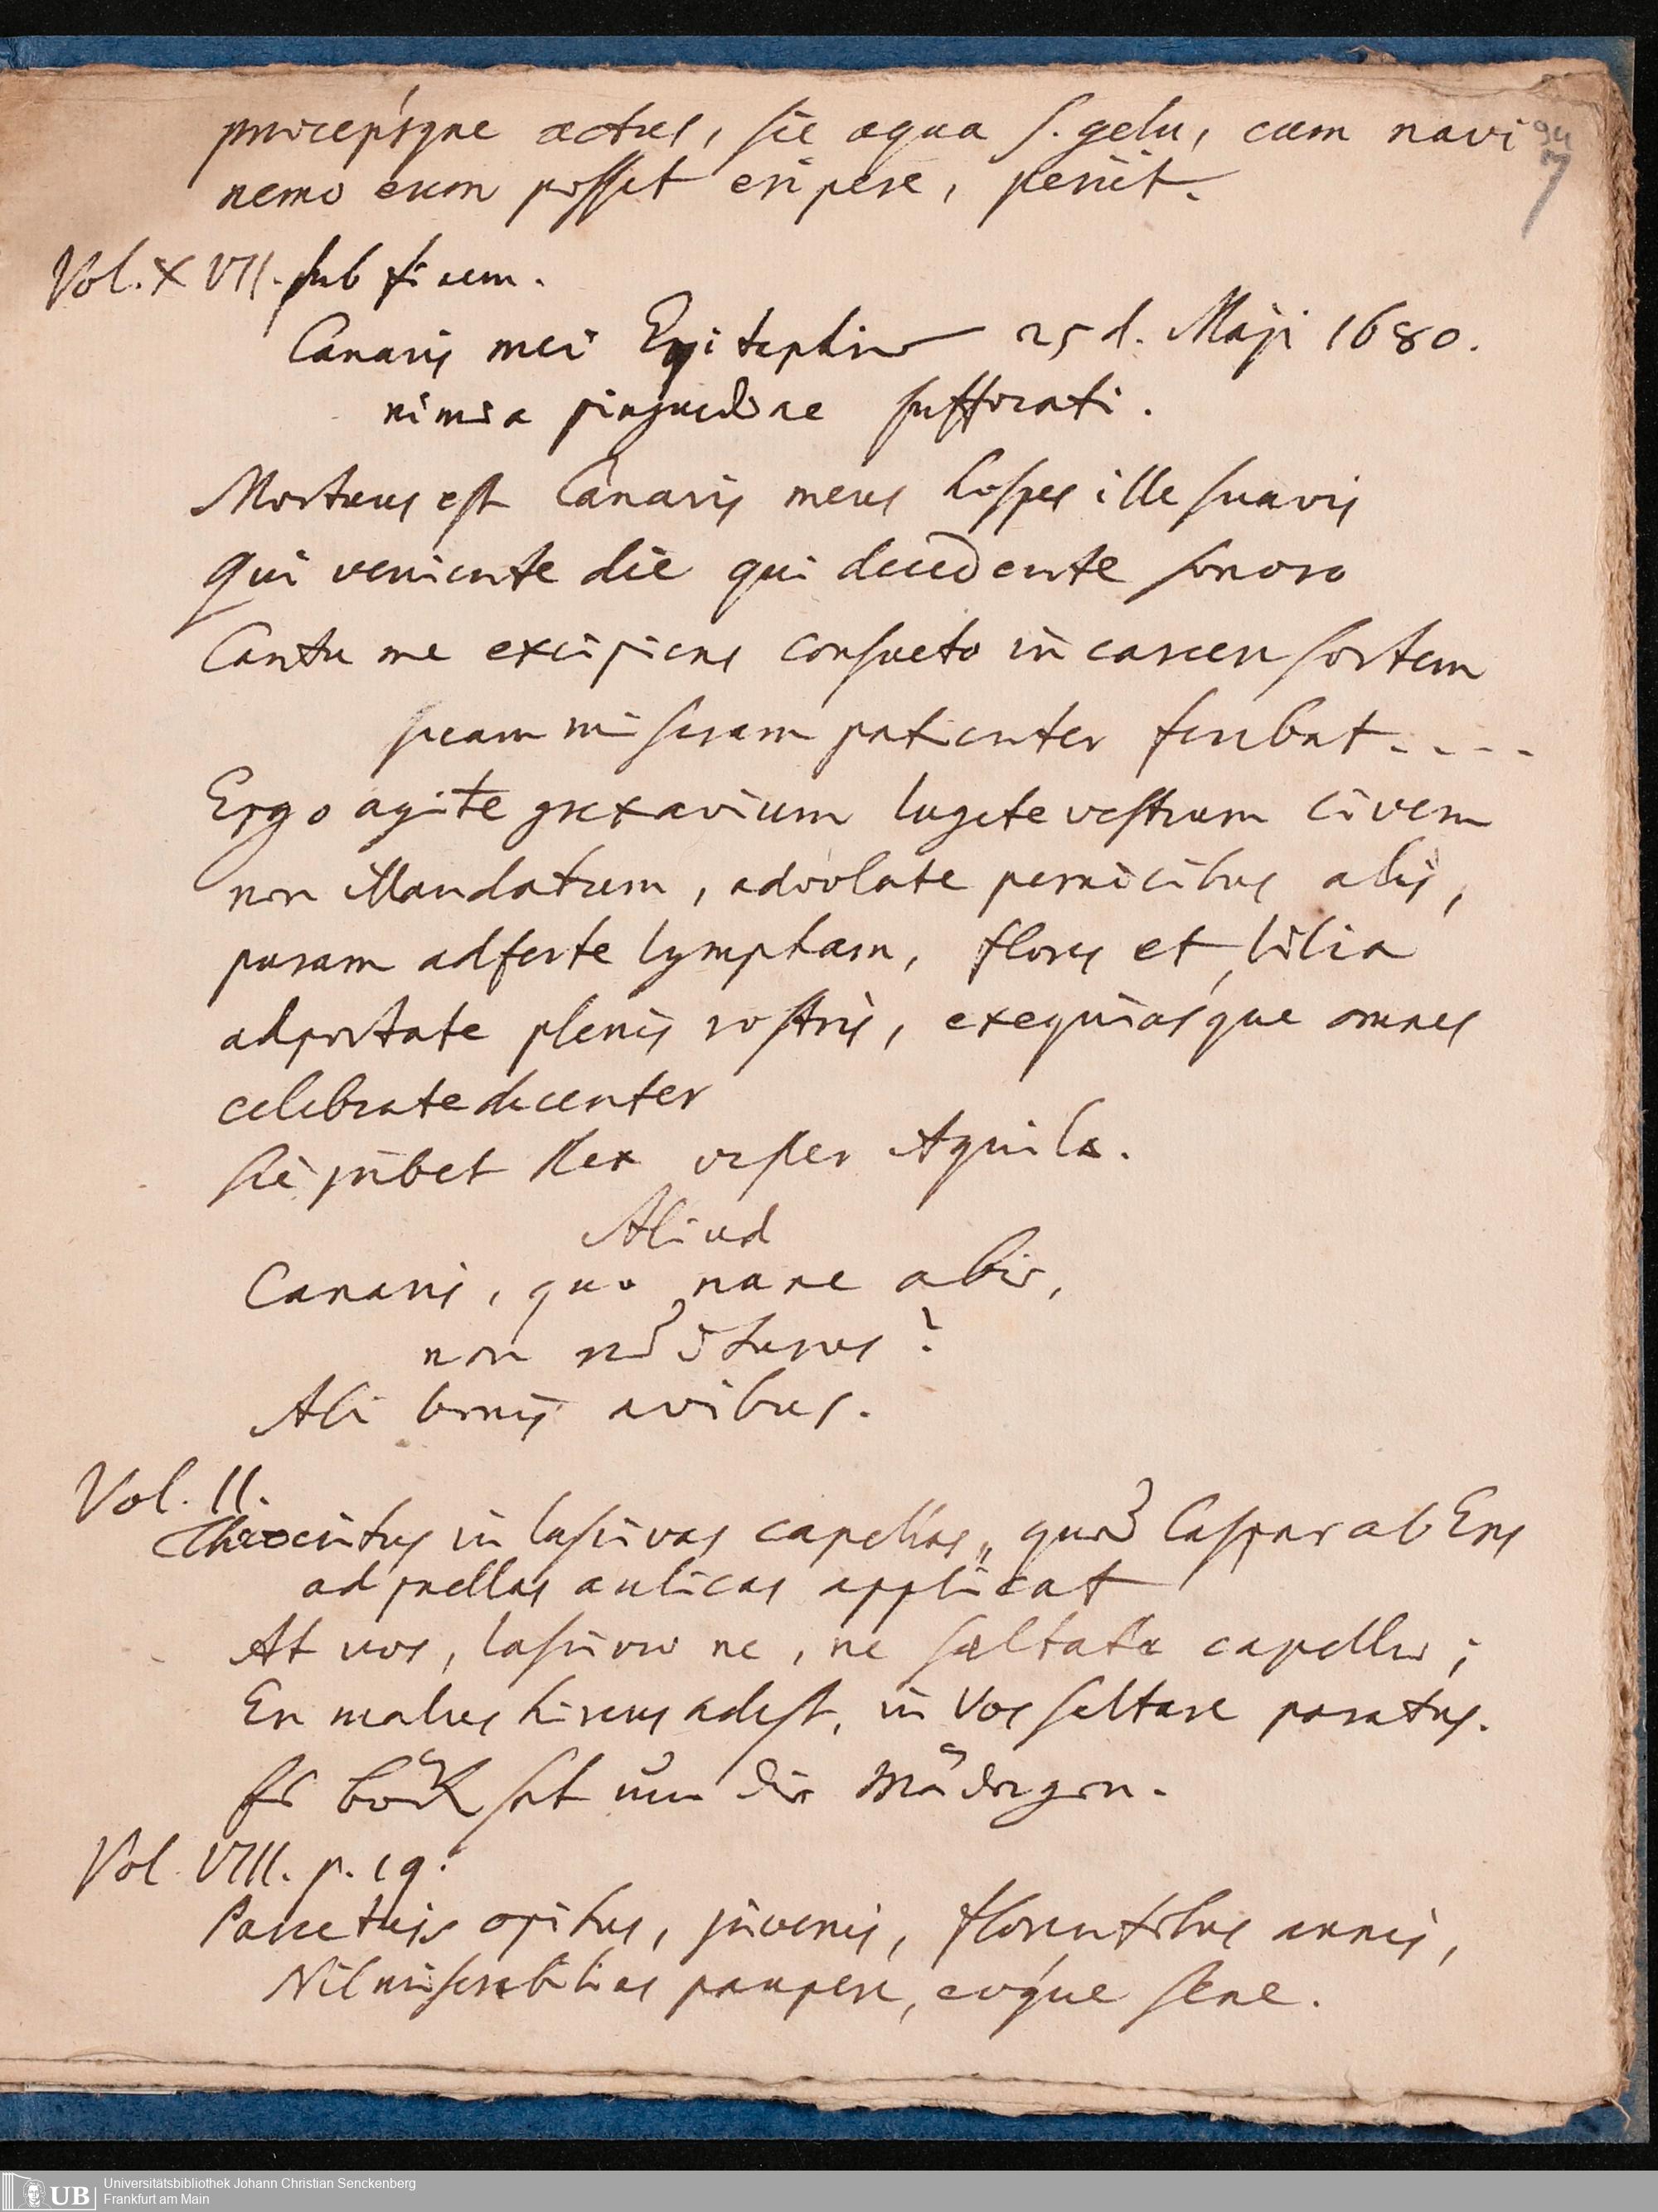 præcepsque actus, sie aqua s. gelu, cum navi
nemo eum posset eripere, periit.
94
7
Vol. XVII. sub finem.
Canaris mei Epitaphium 25 d. Maji 1680.
nimia pinguedine suffocati.
Mortuus est Canaris meus hospes ille suavis
qui veniente die qui decedente sonoro
Cantu me excipiens consueto in carcere sortem
suam miseram patienter ferebat - - - -
Ergo agite grex avium lugete vestrum civem
non Mandatum, advolate pernicibus alis,
puram adferte lympham, flores et lilia
adportate plenis rostris, exequiasque omnes
celebrate decenter
sic jubet Rex vester Aquila.
Aliud
Canaris, quo nane abis,
non rediturus?
Abi bonis avibus.
Vol. II.
Theocritus in lascivas capellas, quod Caspar ab Ens
ad puellas aulicas applicat
At vos, lascivæ ne, ne saltate capellæ;
En malus hircus adest, in vos saltare paratus.
Er Böck hat um die Mädgen.
Vol VIII. p. 19.
Parce tuis opibus, juvenis, florentibus annis,
Nil miserabilius paupere, eoque sene.
UB
Universitätsbibliothek Johann Christian Senckenberg
Frankfurt am Main